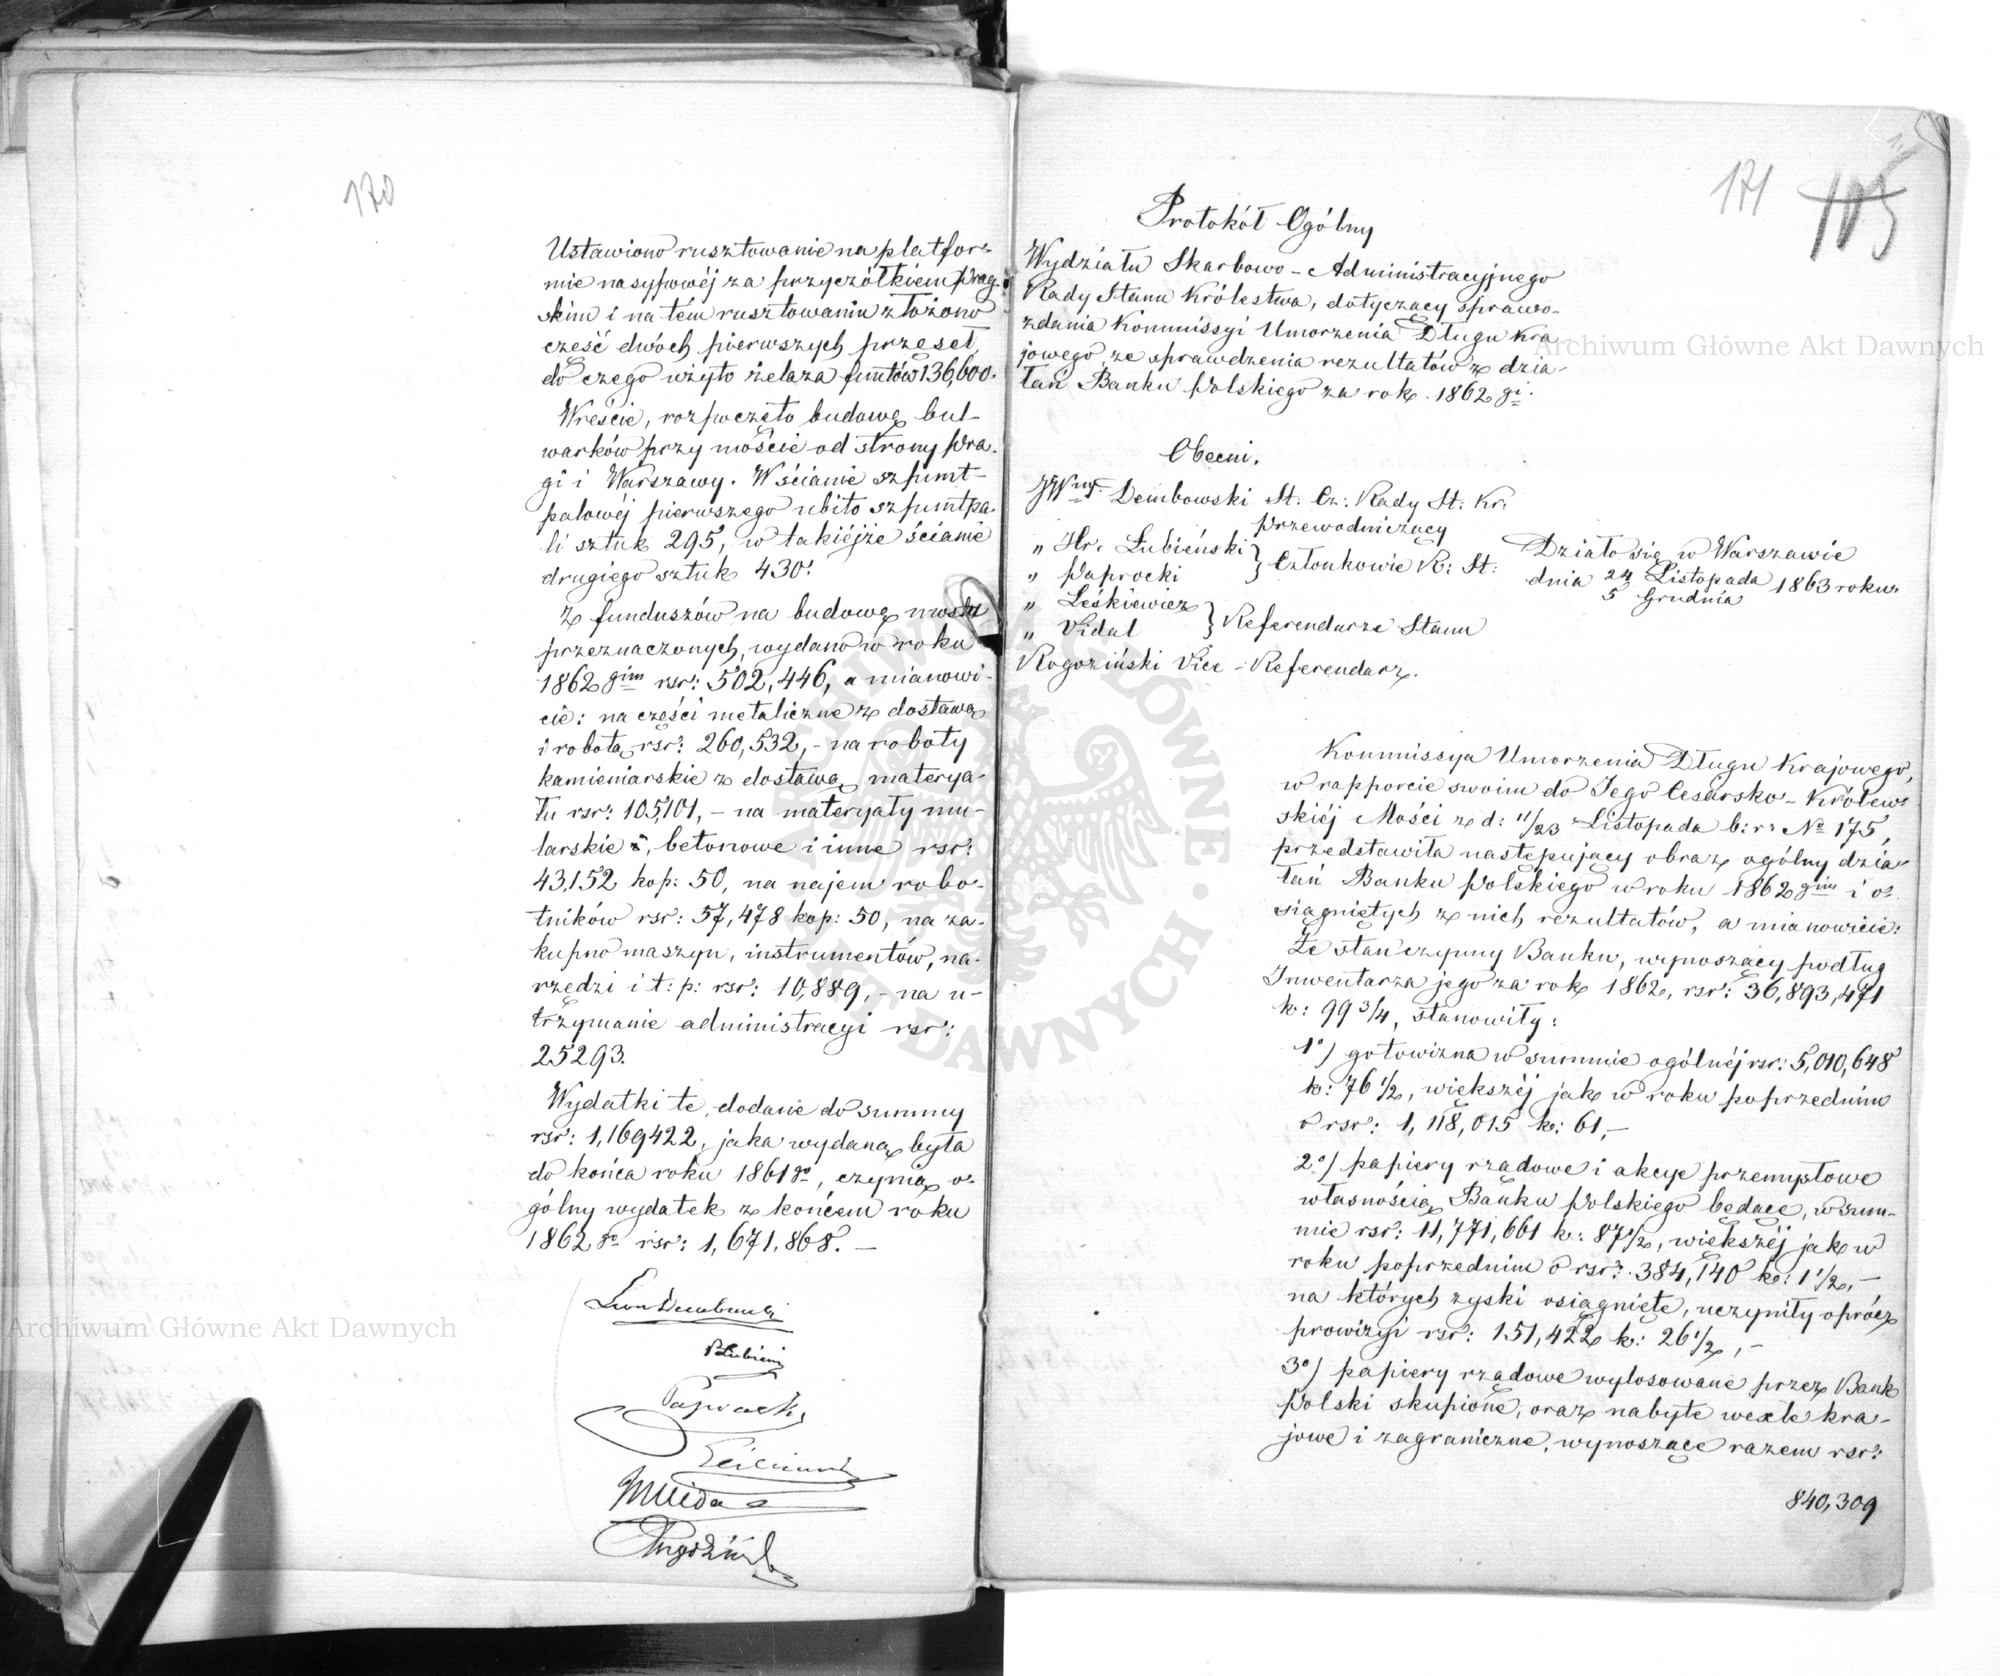 170
Ustawiono rusztowanie na platfor-
mie nasypowéj za przyczółkiem Prag-
skim i na tém rusztowaniu złożono
część dwóch pierwszych przęseł,
do czego użyto żelaza funtów 136,600.
Wreście, rozpoczęto budowę bul-
warków przy moście od strony Pra-
gi i Warszawy. W ścianie szpunt-
palowéj pierwszego ubito szpuntpa-
li sztuk 295, w takiéjże ścianie
drugiego sztuk 430.
Z funduszów na budowę mostu
przeznaczonych, wydano w roku
1862 gim rsr: 502,446, a mianowi-
cie: na części metaliczne z dostawą
i robotą rsr: 260,532, - na roboty
kamieniarskie z dostawą materya-
łu rsr: 105,101, - na materyały mu-
larskie, betonowe i inne rsr:
43,152 kop: 50, na najem robo-
tników rsr: 57,478 kop: 50, na za-
kupno maszyn, instrumentów, na-
rzędzi i t: p: rsr: 10,889, - na u-
trzymanie administracyi rsr:
25293.
Wydatki te, dodane do summy
rsr: 1,169422, jaka wydaną była
do końca roku 1861 go, czynią o-
gólny wydatek z końcem roku
1862 go rsr: 1,671,868. -
Łubieński
Paprocki
Vidal
Rogoziński
171
105
Protokół Ogólny
Wydziału Skarbowo - Administracyjnego
Rady Stanu Królestwa, dotyczący sprawo-
zdania Kommissyi Umorzenia Długu Kra-
jowego, ze sprawdzenia rezultatów z dzia-
łań Banku Polskiego za rok 1862 gi.
Obecni.
JW Dembowski St. Cz: Rady St: Kr:
Przewodniczący
" Hr. Łubieński } Członkowie R: St:
" Paprocki
" Leśkiewicz } Referendarze Stanu
" Vidal
Rogoziński Vice - Referendarz.
Działo się w Warszawie
dnia 24 Listopada 1863 roku.
5 Grudnia
Kommissya Umorzenia Długu Krajowego,
w rapporcie swoim do Jego Cesarsko - Królew-
skiéj Mości z d: 11/23 Listopada b: r: No 175,
przedstawiła następujący obraz ogólny dzia-
łań Banku Polskiego w roku 1862 gim i o-
siągniętych z nich rezultatów, a mianowicie:
Że stan czynny Banku, wynoszący podług
Inwentarza jego za rok 1862, rsr: 36,893,471
k: 99 3/4, stanowiły:
1o) gotowizna w summie ogólnéj rsr: 5,010,648
k: 76 1/2, większéj jak w roku poprzednim
o rsr: 1,118,015 k: 61, -
2o) papiery rządowe i akcye przemysłowe
własnością Banku Polskiego będące, w sum-
mie rsr: 11,771,661 k: 87 1/2, większéj jak w
roku poprzednim o rsr: 384,140 k: 1 1/2, -
na których zyski osiągnięte, uczyniły oprócz
prowizyi rsr: 151,422 k: 26 1/2, -
3o) papiery rządowe wylosowane przez Bank
Polski skupione, oraz nabyte wexle kra-
jowe i zagraniczne, wynoszące razem rsr:
840,309
Archiwum Główne Akt Dawnych
Archiwum Główne Akt Dawnych
ARCHIWUM GŁÓWNE AKT DAWNYCH